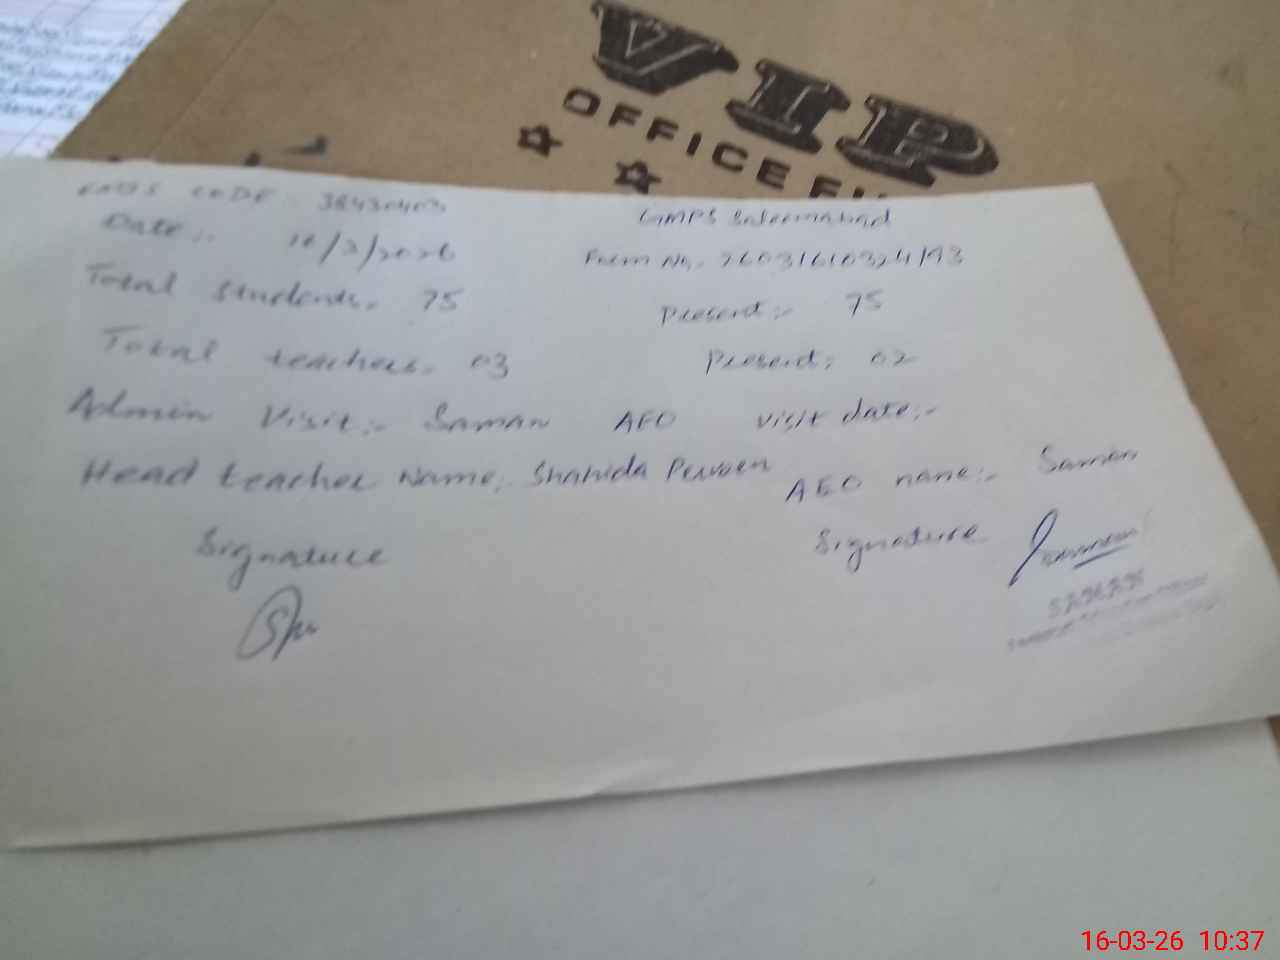 VIP
OFFICE
CODE 38430403 GMPS Saleemabad
Date:- 16/3/2026 Form No. 26031610324193
Total students. 75 Present:- 75
Total teachers. 03 Present: 02
Admin Visit:- Saman AEO visit date:-
Head teacher Name, Shahida Perveen AEO name:- Saman
Signature Signature
SAMAN
16-03-26 10:37